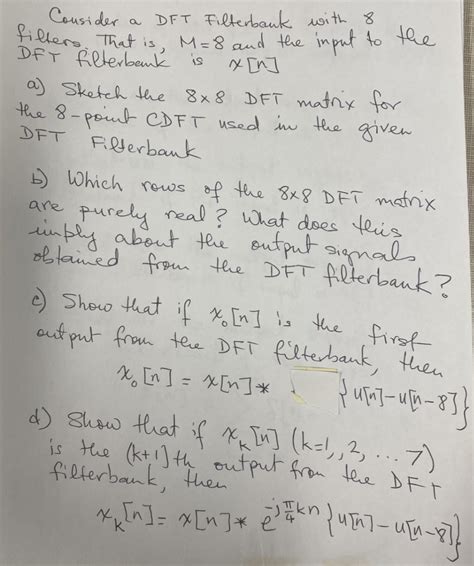 Consider a DFT Filterbank with 8
filters. That is, M=8 and the input to the
DFT filterbank is x[n]
a) Sketch the 8x8 DFT matrix for
the 8-point CDFT used in the given
DFT Filterbank
b) Which rows of the 8x8 DFT matrix
are purely real? What does this
imply about the output signals
obtained from the DFT filterbank?
c) Show that if x₀[n] is the first
output from the DFT filterbank, then
x₀[n] = x[n] * {u[n]-u[n-8]}
d) Show that if xₖ[n] (k=1,,2, ... 7)
is the (k+1]th output from the DFT
filterbank, then
xₖ[n] = x[n] * e^{-j π/4 kn} {u[n]-u[n-8]}